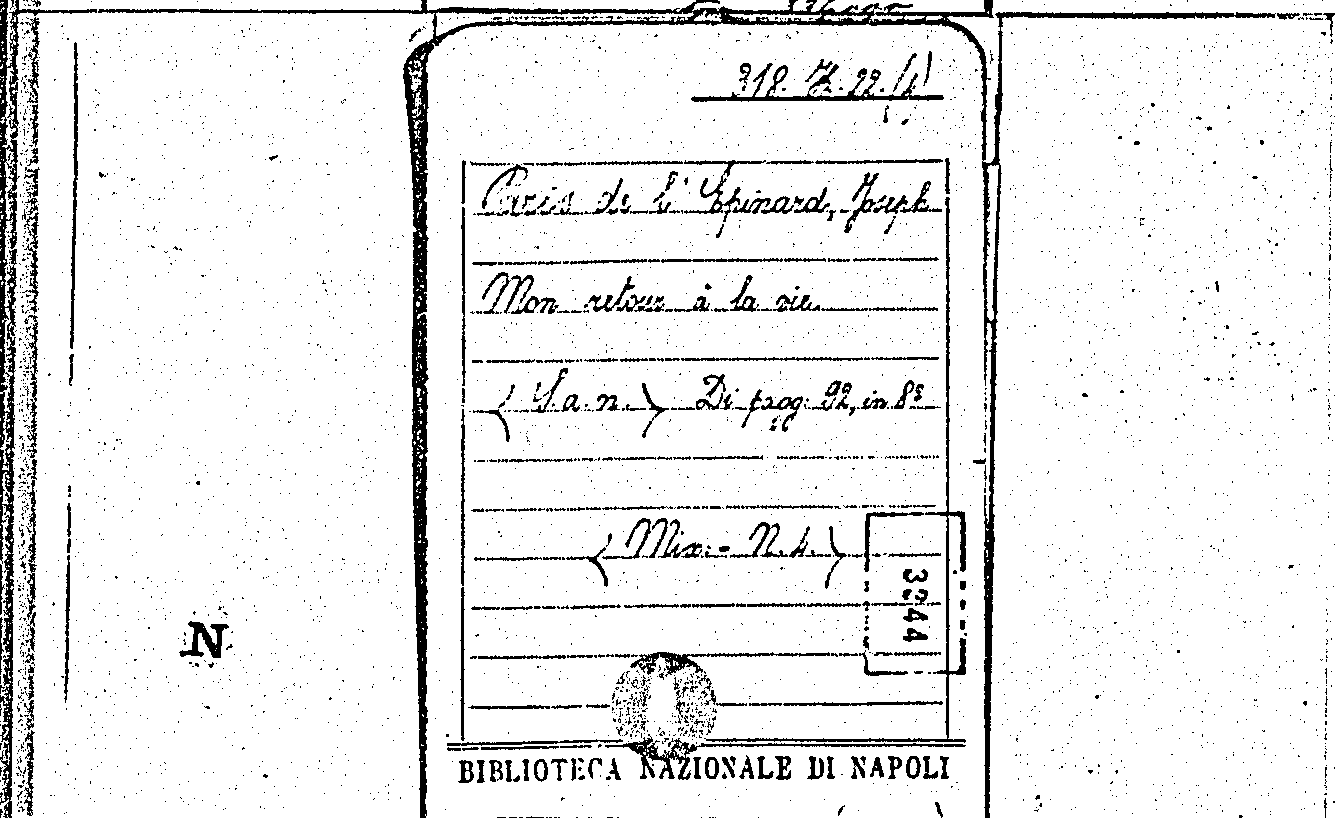 318. Z. 22. (4)
Paris de l'Epinard, Joseph
Mon retour à la vie.
(S. a. n.) Di pag. 92, in 8º
(Mix. - N. 4.)
3244
N
BIBLIOTECA NAZIONALE DI NAPOLI